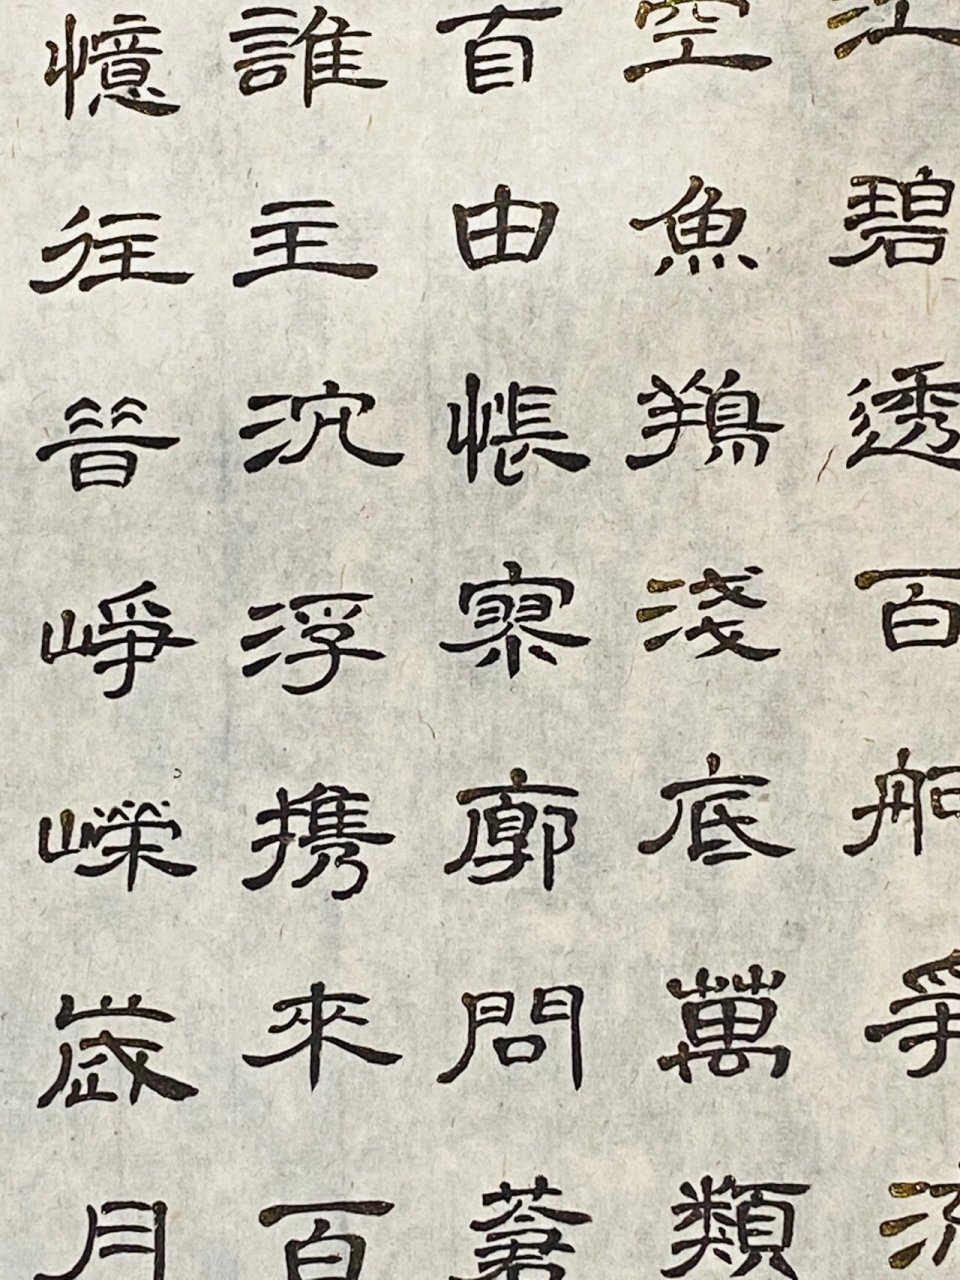 江碧透百舸爭流
空魚翔淺底萬類
自由悵寥廓問蒼
誰主沉浮携來百
憶往昔崢嶸歲月